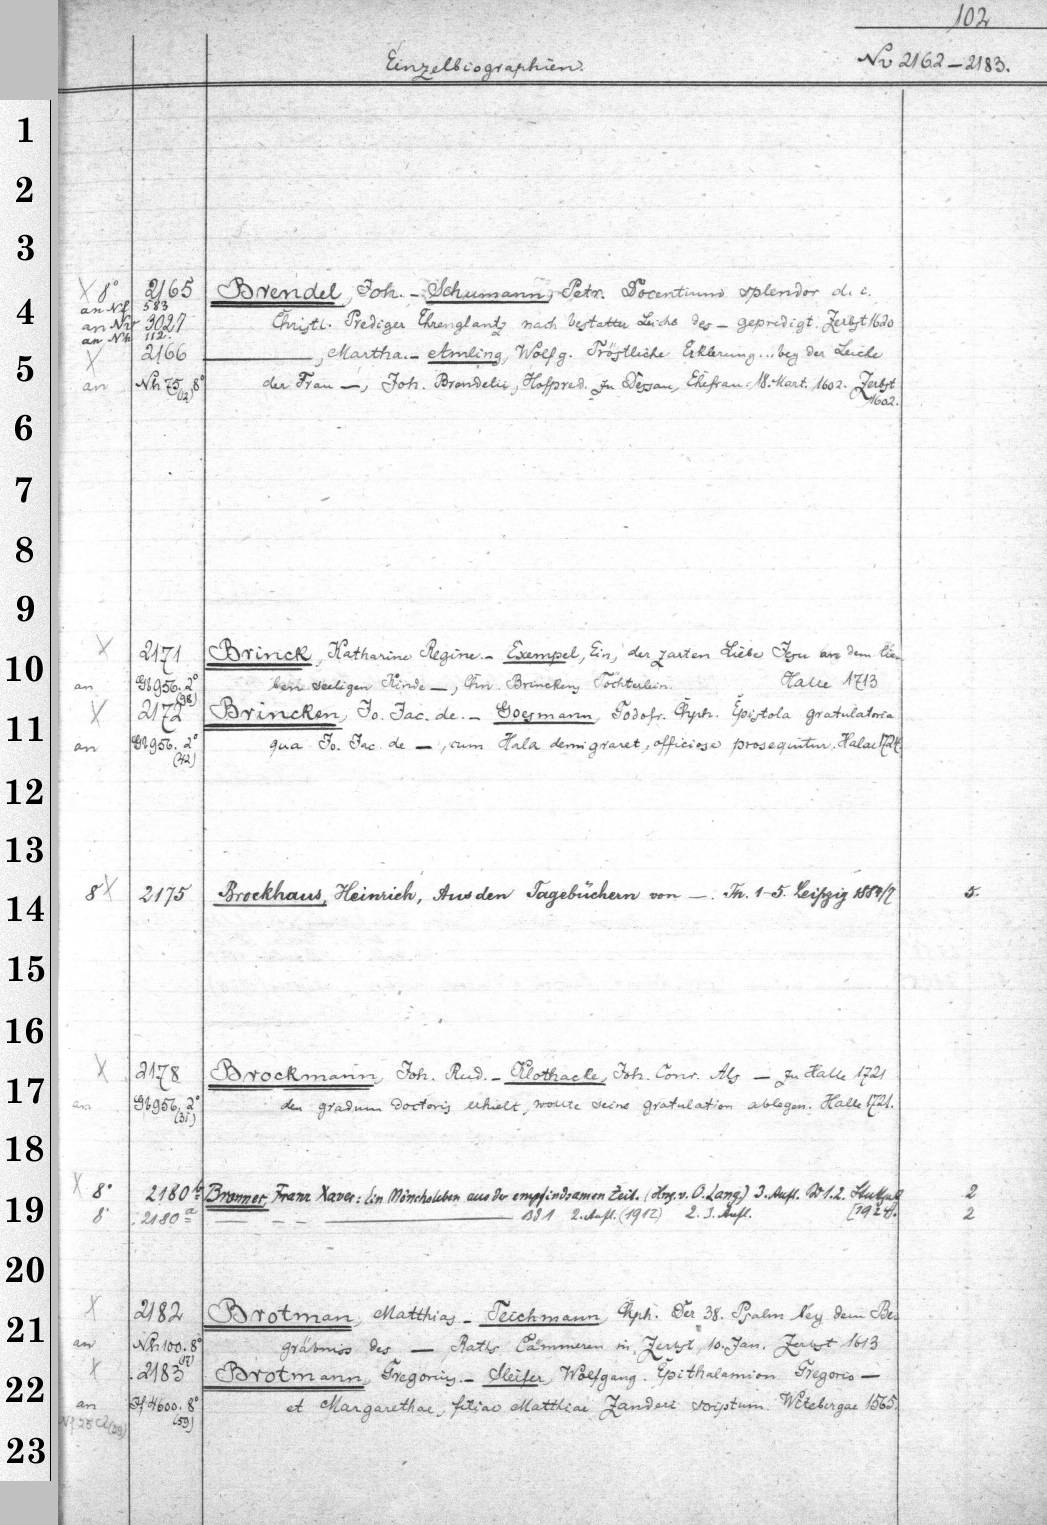 102
Einzelbiographien.
Nr 2162–2183.
1
2
3
X 8° 2165 Brendel, Joh. – Schumann, Petr. Docentium splendor d. i.
4
an Nf 583
an Nv 3027 Christl. Prediger Ehrenglantz nach bestatter Leiche des – gepredigt. Zerbst 1620
an Nh 112.
5
X 2166 ———, Martha. – Amling, Wolfg. Tröstliche Erklerung... bey der Leiche
an Nh 75, 8° (12) der Frau —, Joh. Brendelii, Hofpred. zu Dessau, Ehefrau. 18. Mart. 1602. Zerbst
1602.
6
7
8
9
X 2171 Brinck, Katharine Regine. – Exempel, Ein, der zarten Liebe Jesu an dem lie-
10
an Gb 956. 2° (98) ben seeligen Kinde —, Chn. Brinckens Töchterlein. Halle 1713
X 2172 Brincken, Jo. Jac. de. – Goesmann, Godofr. Chph. Epistola gratulatoria
11
an Gb 956. 2° (42) qua Jo. Jac. de —, cum Hala demigraret, officiose prosequitur. Halae 1724.
12
13
8 X 2175 Brockhaus, Heinrich, Aus den Tagebüchern von —. Th. 1–5. Leipzig 1884/7 5.
14
15
16
X 2178 Brockmann, Joh. Rud. – Klothacke, Joh. Conr. Als — zu Halle 1721
17
an Gb 956. 2° (31) den gradum doctoris erhielt, wollte seine gratulation ablegen. Halle 1721.
18
X 8° 2180 b Bronner, Franz Xaver: Ein Mönchsleben aus der empfindsamen Zeit. (Hrg. v. O. Lang) 3. Aufl. Bd 1. 2. Stuttgart 2
19
8° 2180 a — — — ——— Bd 1 2. Aufl. (1912) 2. 3. Aufl. [1924]. 2
20
X 2182 Brotman, Matthias – Teichmann, Chph. Der 38. Psalm bey dem Be-
21
an Nh 100. 8° (17) gräbniss des — Raths Cämmeren in Zerbst, 10. Jan. Zerbst 1613
X 2183 Brotmann, Gregorius. – Sleifer, Wolfgang. Epithalamion Gregorio —
22
an If 4600. 8° (59) et Margarethae, filiae Matthiae Zanderi scriptum. Witebergae 1565.
23